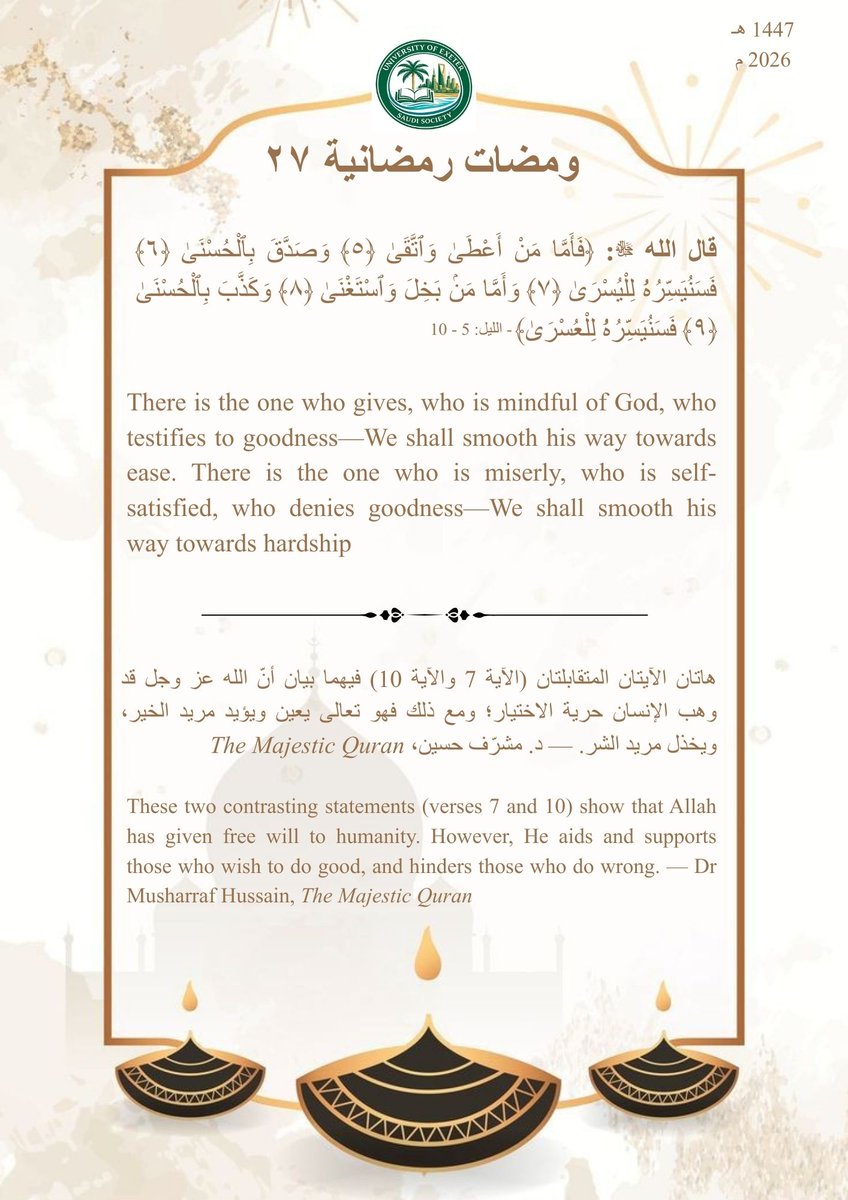 1447 هـ
2026 م
UNIVERSITY OF EXETER
SAUDI SOCIETY
ومضات رمضانية ٢٧
قال الله ﷻ: ﴿فَأَمَّا مَنْ أَعْطَىٰ وَٱتَّقَىٰ ﴿٥﴾ وَصَدَّقَ بِٱلْحُسْنَىٰ ﴿٦﴾
فَسَنُيَسِّرُهُۥ لِلْيُسْرَىٰ ﴿٧﴾ وَأَمَّا مَنۢ بَخِلَ وَٱسْتَغْنَىٰ ﴿٨﴾ وَكَذَّبَ بِٱلْحُسْنَىٰ
﴿٩﴾ فَسَنُيَسِّرُهُۥ لِلْعُسْرَىٰ﴾ - الليل: 5 - 10
There is the one who gives, who is mindful of God, who
testifies to goodness—We shall smooth his way towards
ease. There is the one who is miserly, who is self-
satisfied, who denies goodness—We shall smooth his
way towards hardship
هاتان الآيتان المتقابلتان (الآية 7 والآية 10) فيهما بيان أنّ الله عز وجل قد
وهب الإنسان حرية الاختيار؛ ومع ذلك فهو تعالى يعين ويؤيد مريد الخير،
ويخذل مريد الشر. — د. مشرّف حسين، The Majestic Quran
These two contrasting statements (verses 7 and 10) show that Allah
has given free will to humanity. However, He aids and supports
those who wish to do good, and hinders those who do wrong. — Dr
Musharraf Hussain, The Majestic Quran